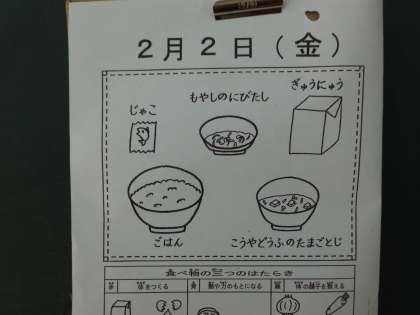 2月2日(金)
ぎゅうにゅう
もやしのにびたし
じゃこ
ごはん
こうやどうふのたまごとじ
食べ物の三つのはたらき
赤 体をつくる 黄 熱や力のもとになる 緑 体の調子を整える